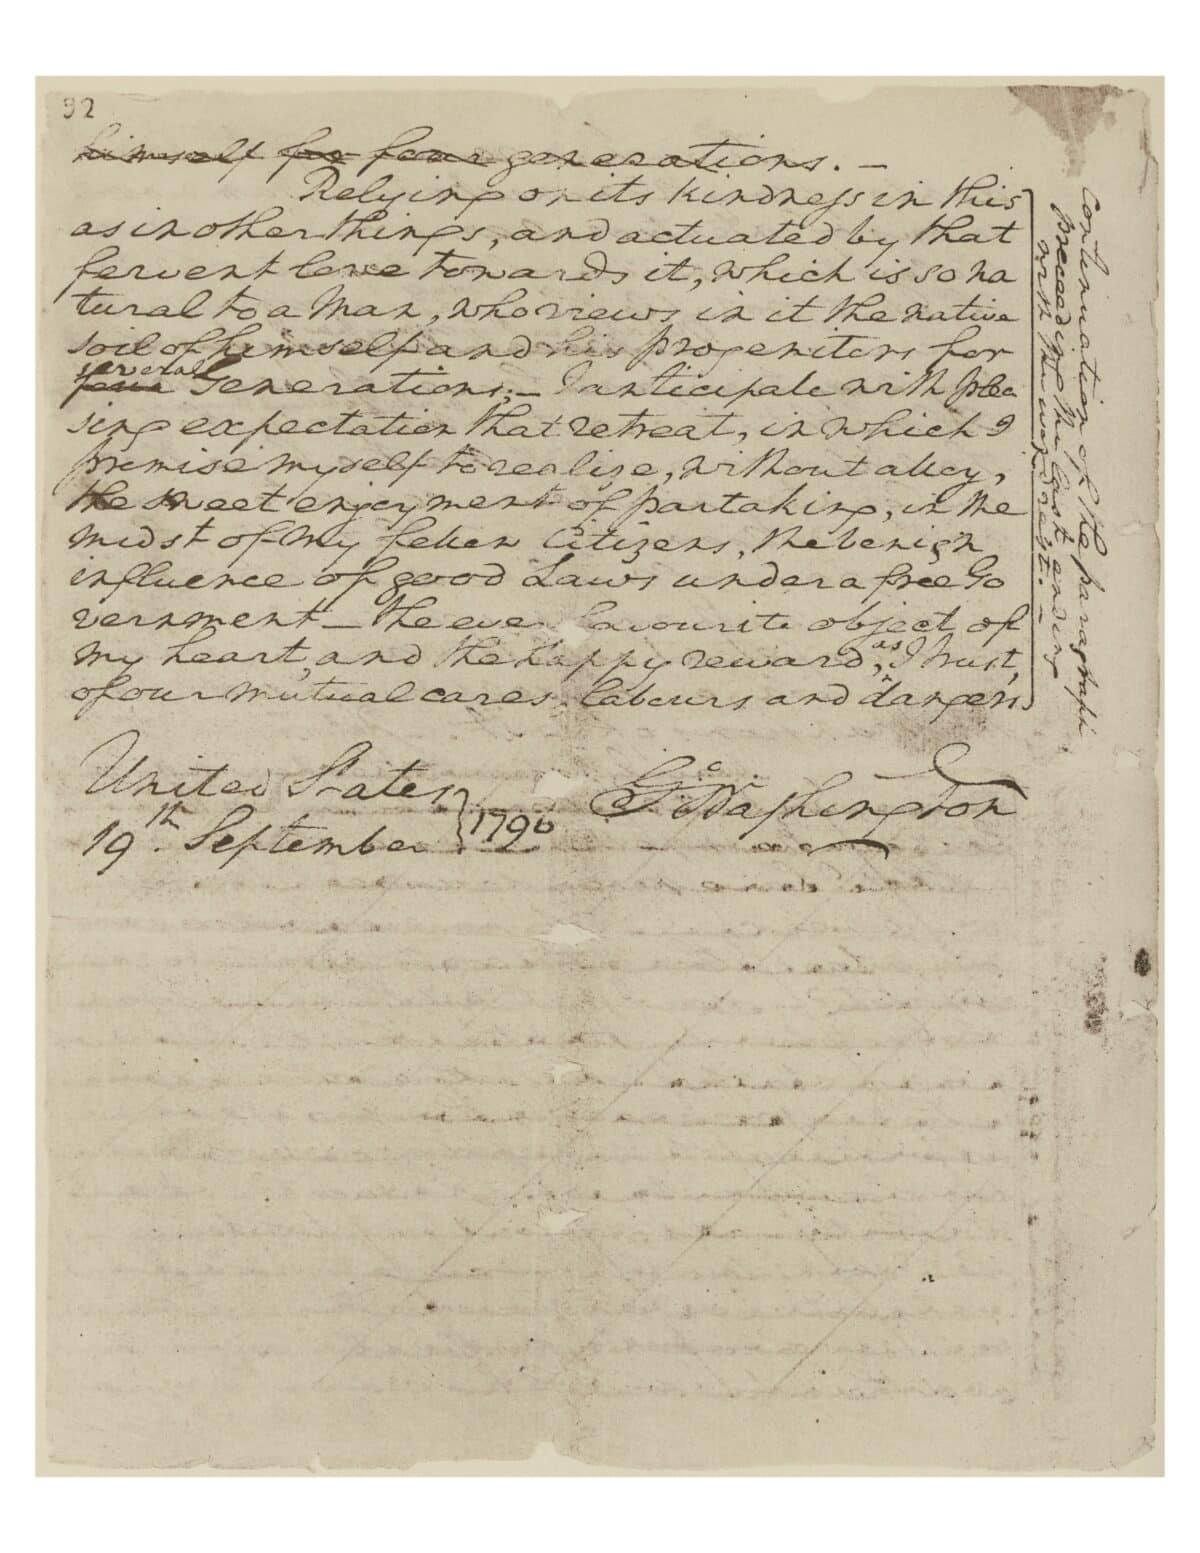 32
himself for four generations. —
Relying on its kindness in this
as in other things, and actuated by that
fervent love towards it, which is so na
tural to a Man, who views in it the native
soil of himself and his progenitors for
several
four Generations; — I anticipate with plea
sing expectation that retreat, in which I
promise myself to realize, without alloy,
the sweet enjoyment of partaking, in the
midst of my fellow Citizens, the benign
influence of good Laws under a free Go
vernment — the ever favourite object of
my heart, and the happy reward, as I trust,
of our mutual cares, labours and dangers.
United States
19th. September } 1796
Go. Washington
Continuation of the paragraph
preceeding the last ending
with the word rest. —